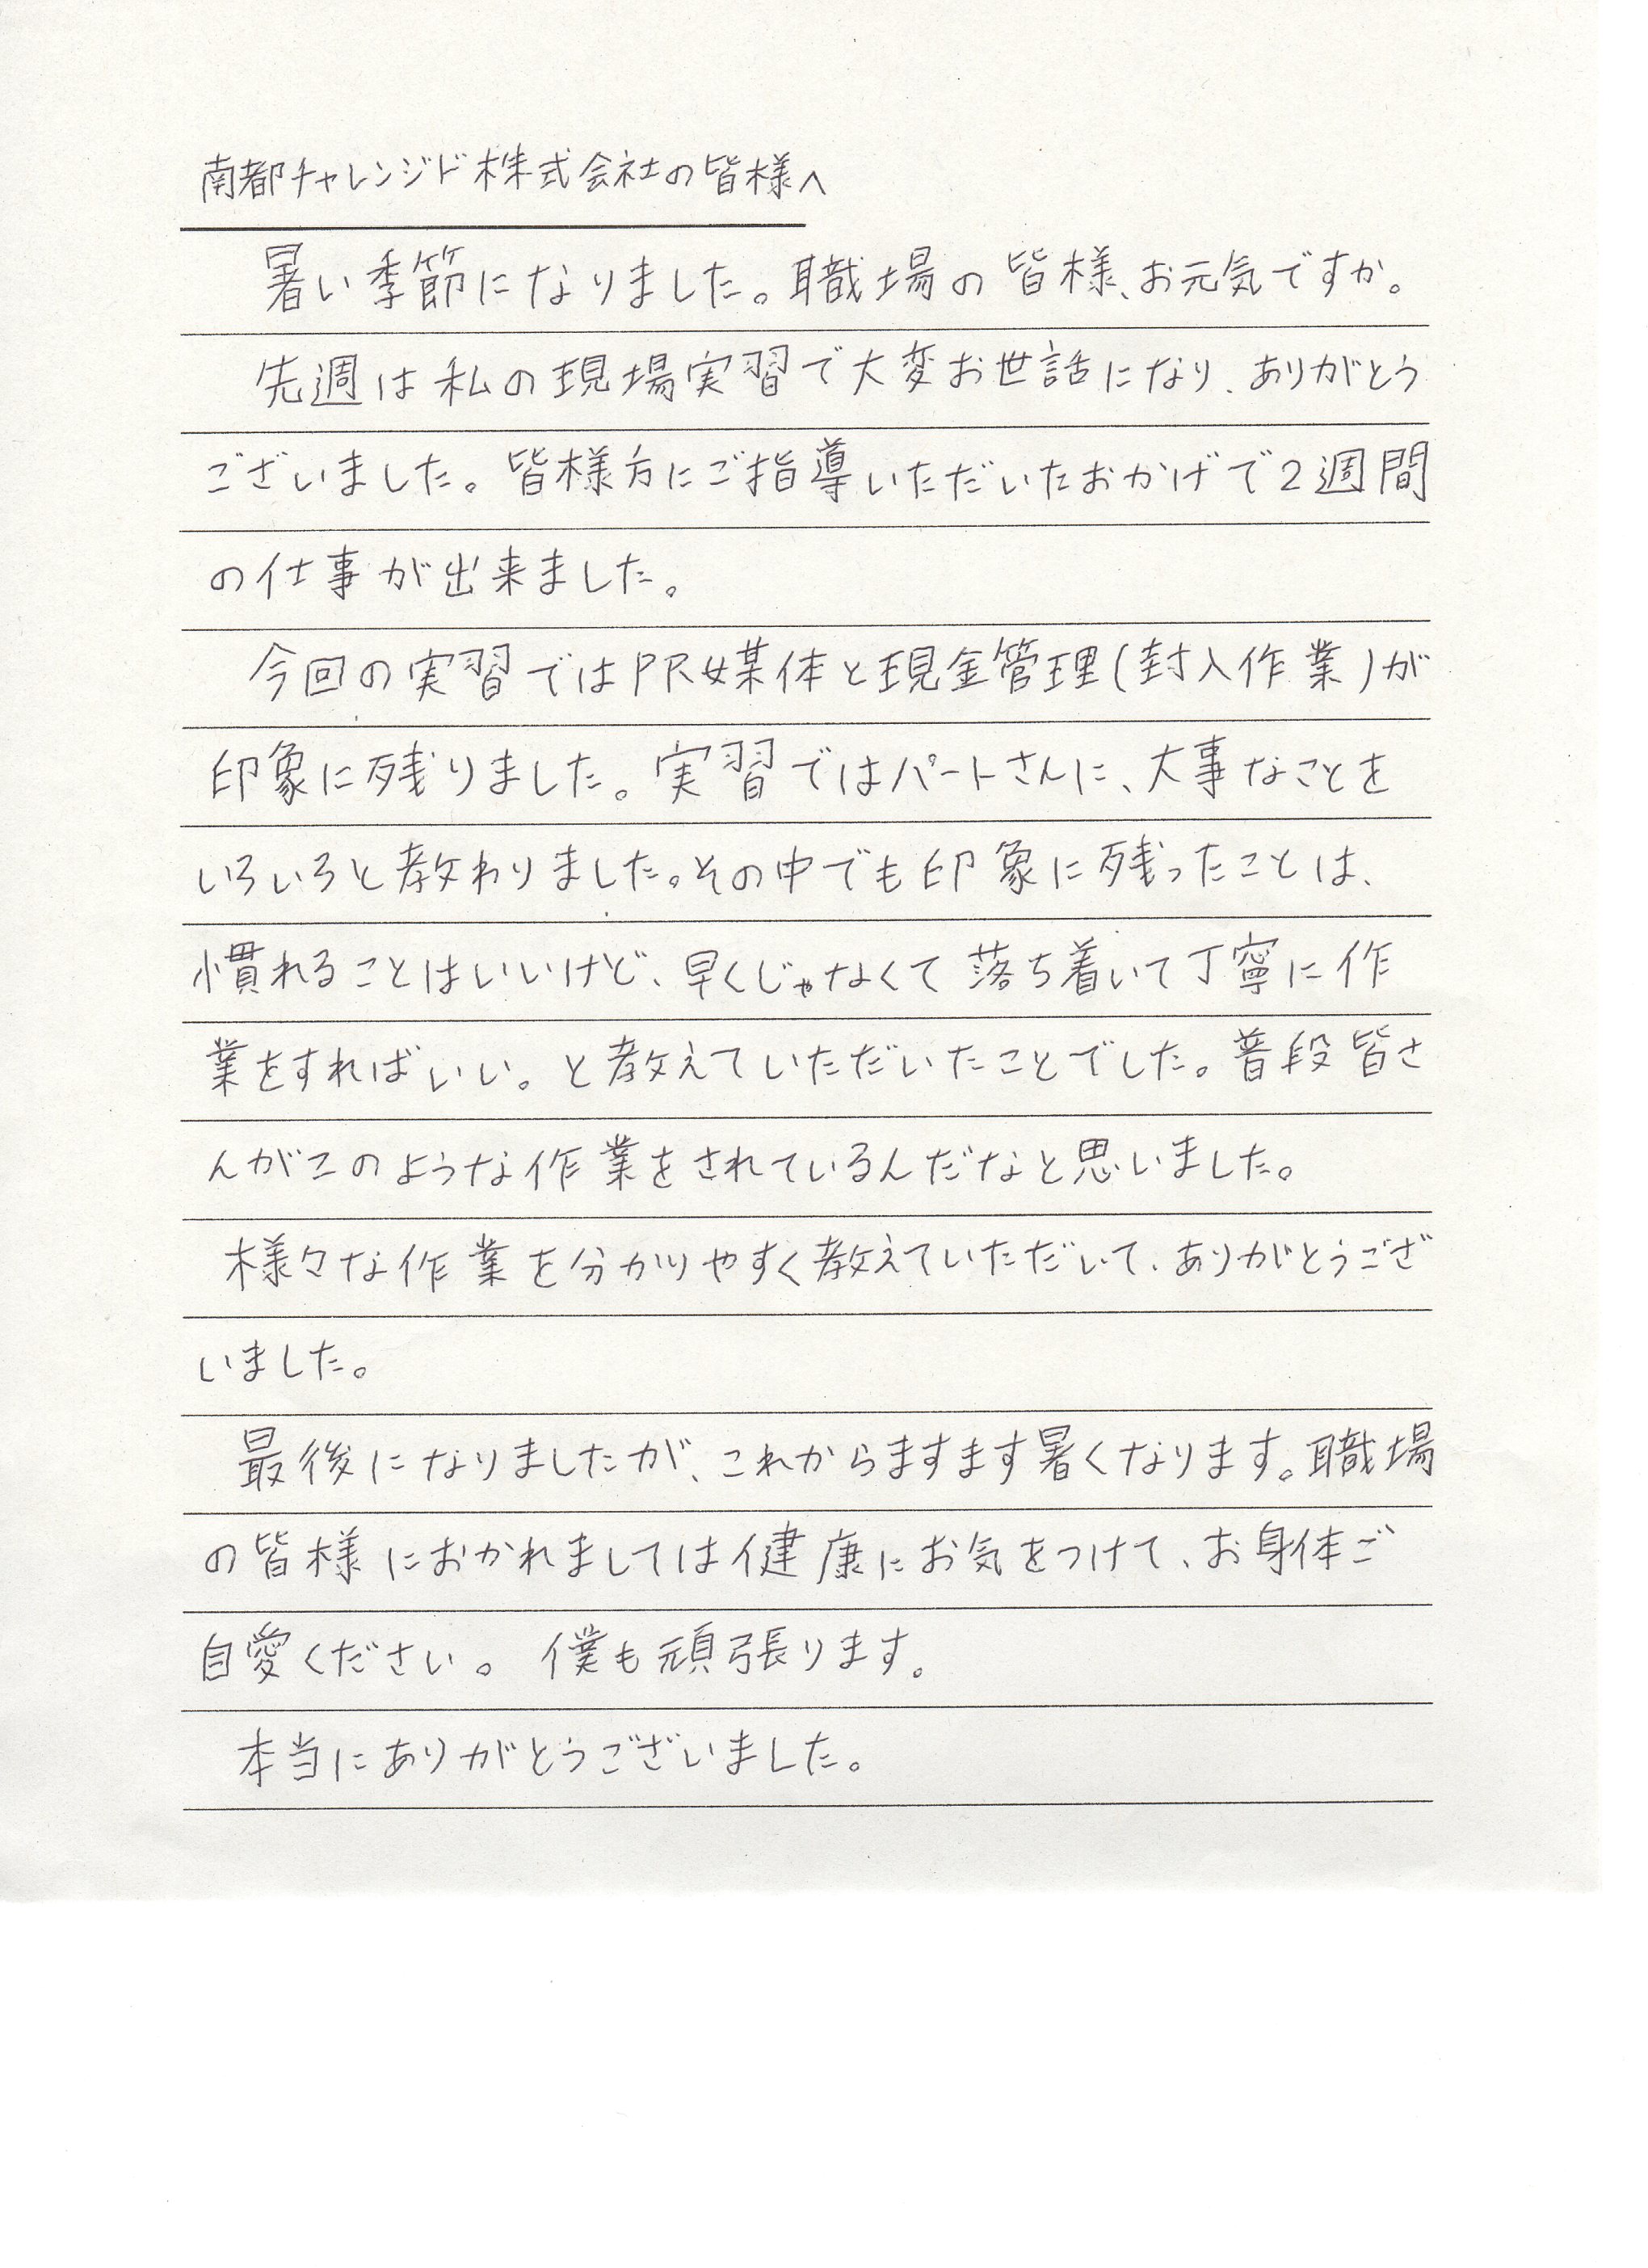 南都チャレンジド株式会社の皆様へ
暑い季節になりました。職場の皆様、お元気ですか。
先週は私の現場実習で大変お世話になり、ありがとう
ございました。皆様方にご指導いただいたおかげで2週間
の仕事が出来ました。
今回の実習ではPR媒体と現金管理(封入作業)が
印象に残りました。実習ではパートさんに、大事なことを
いろいろと教わりました。その中でも印象に残ったことは、
慣れることはいいけど、早くじゃなくて落ち着いて丁寧に作
業をすればいい。と教えていただいたことでした。普段皆さ
んがこのような作業をされているんだなと思いました。
様々な作業を分かりやすく教えていただいて、ありがとうござ
いました。
最後になりましたが、これからますます暑くなります。職場
の皆様におかれましては健康にお気をつけて、お身体ご
自愛ください。僕も頑張ります。
本当にありがとうございました。